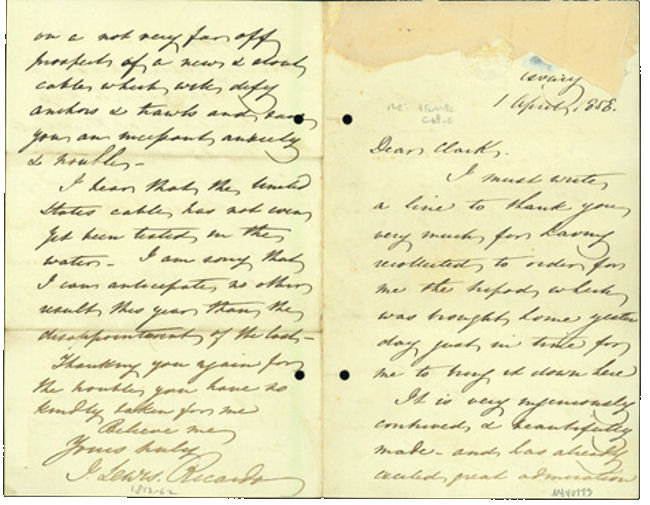 1 April, 1858.
Dear Clark,
I must write
a line to thank you
very much for having
recollected to order for
me the tripod which
was brought home yester
day just in time for
me to bring it down here
It is very ingeniously
contrived & beautifully
made - and has already
excited great admiration
on a not very far off
prospect of a new & stout
cable which will defy
anchors & trawls and save
you an incessant anxiety
& trouble -
I hear that the United
States cable has not even
yet been tested in the
water - I am sorry that
I can anticipate no other
result this year than the
disappointment of the last -
Thanking you again for
the trouble you have so
kindly taken for me
Believe me
Yours truly
J. Lewis Ricardo
1812-62